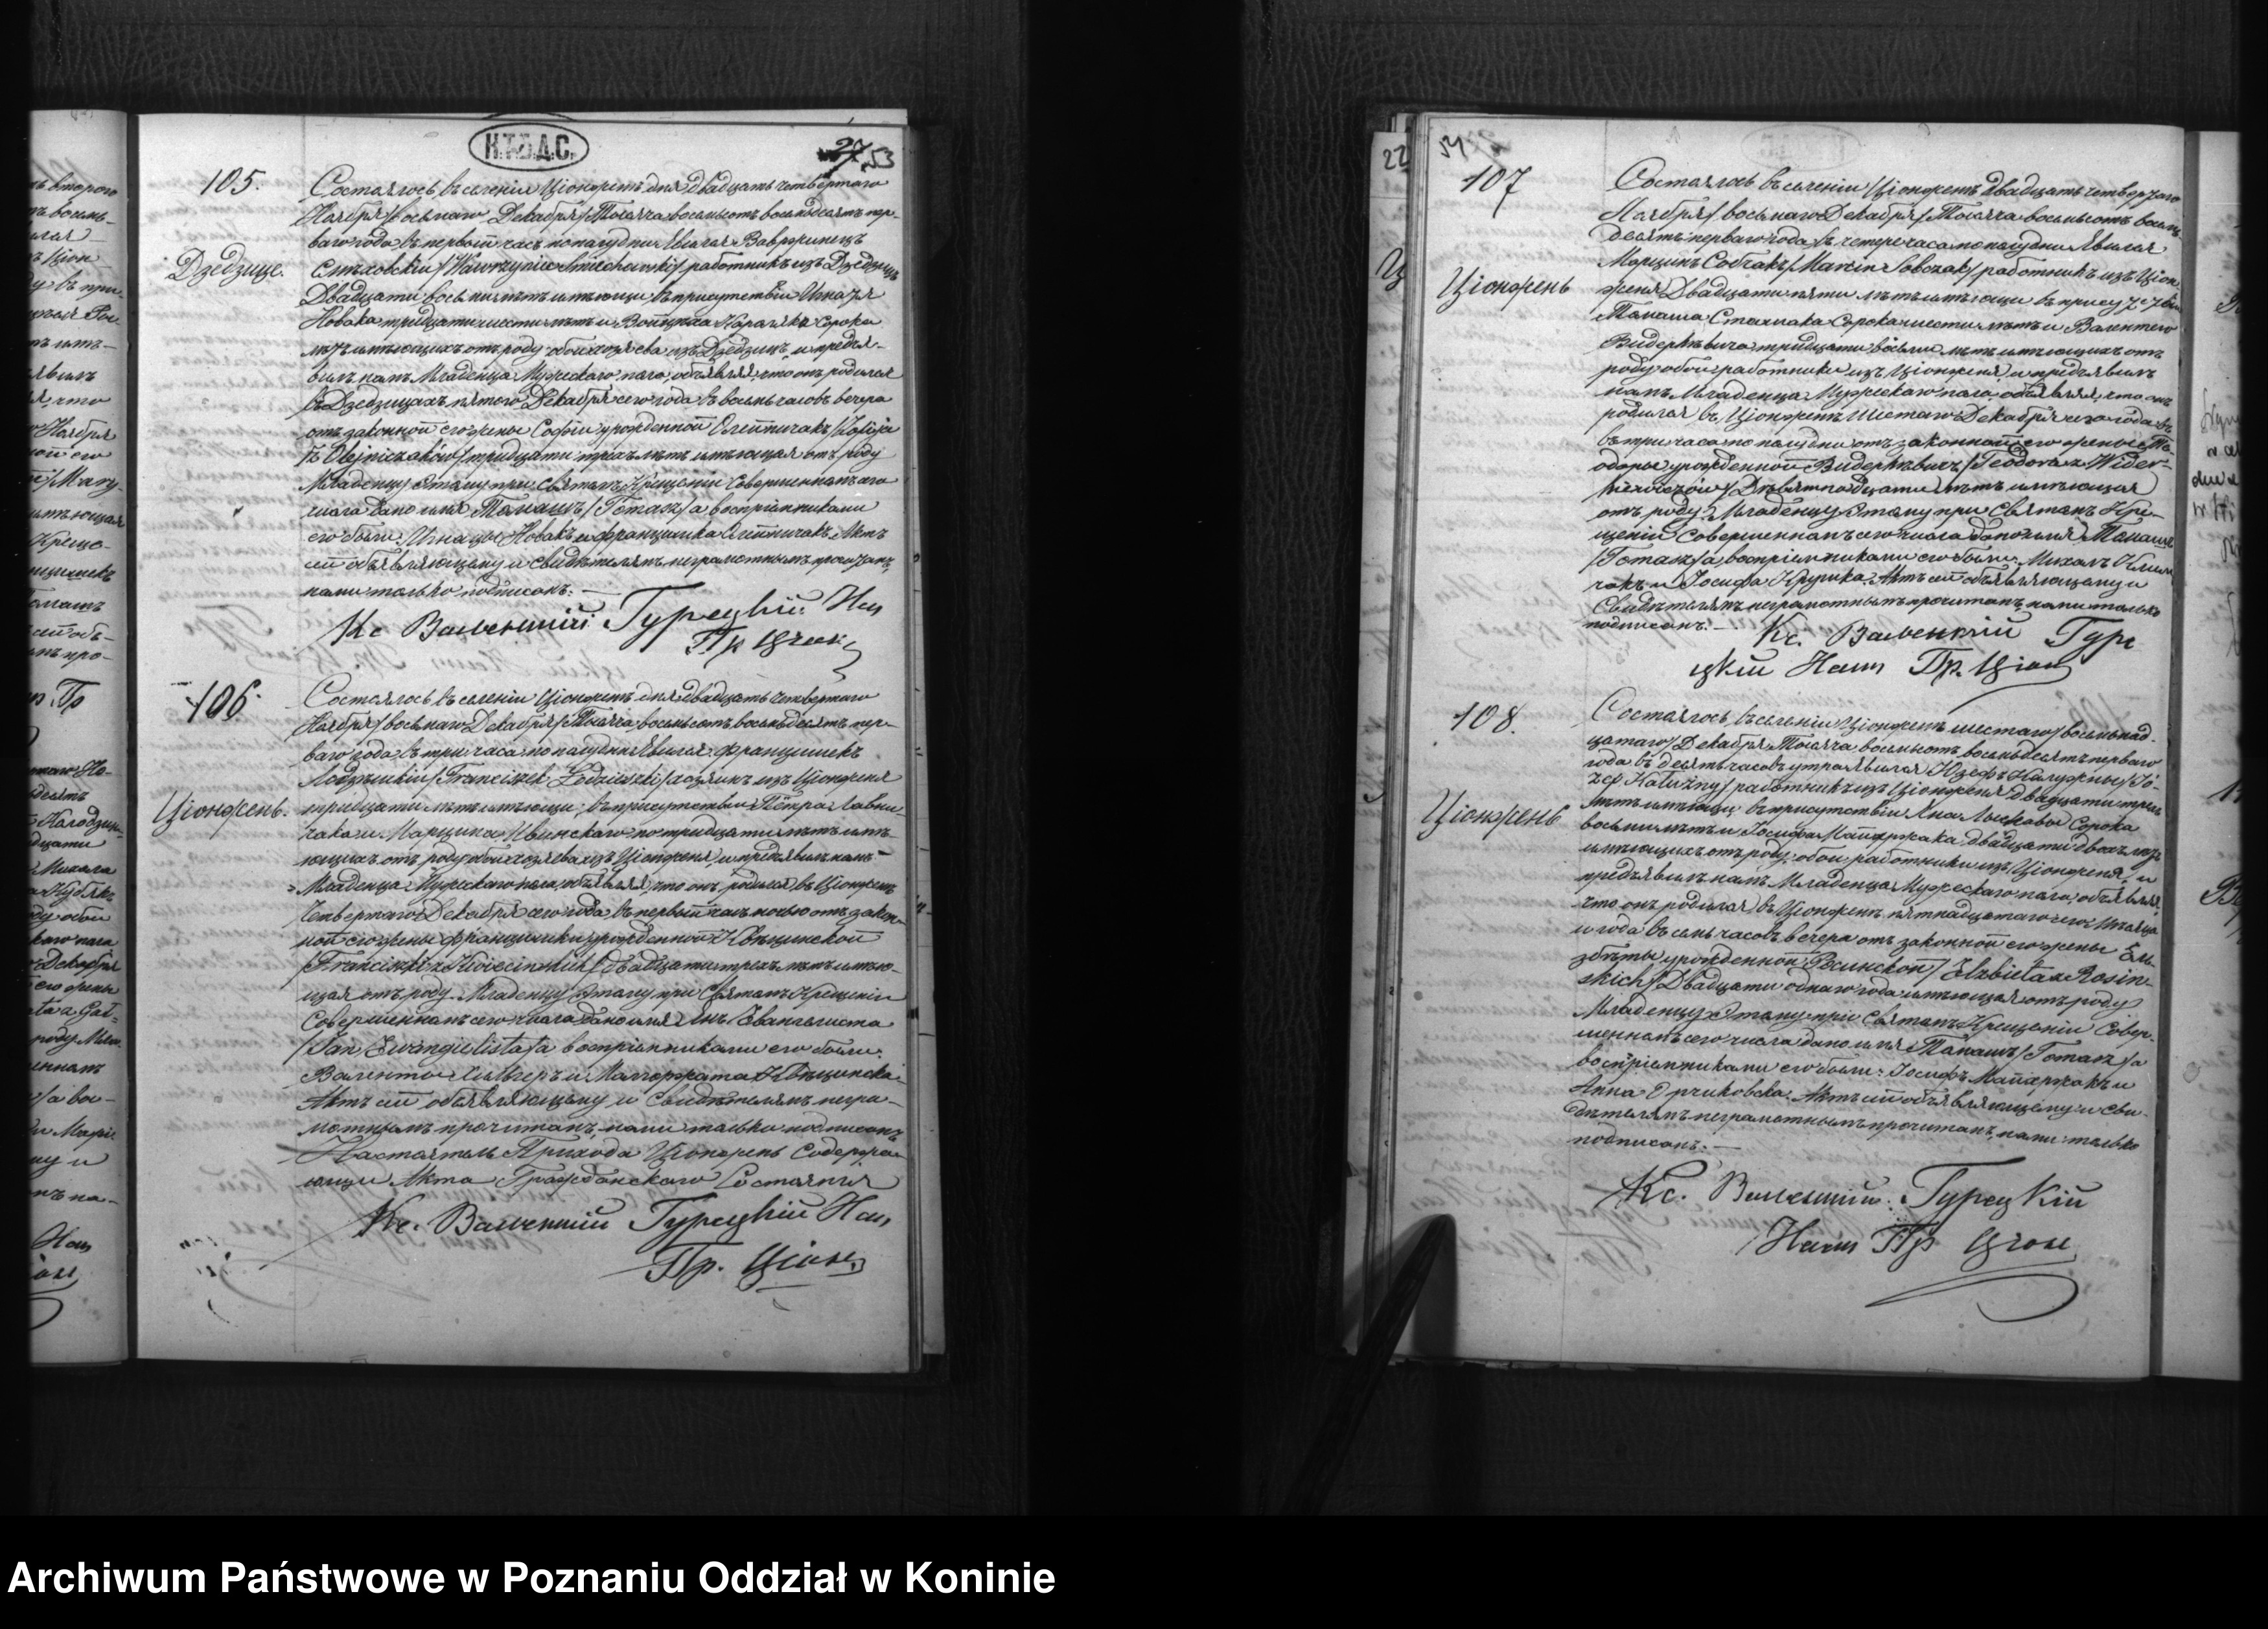 Н.Т.В.Д.С.
27 53
105.
Дзедзице.
Состоялось въ селеніи Ціонжень дня двадцать четвертаго
Ноября /восьмаго Декабря/ Тысяча восемьсотъ восемьдесятъ пер-
ваго года въ первый часъ пополудни. Явился Вавржинецъ
Смѣховскій /Wawrzyniec Śmiechowski/ работникъ изъ Дзедзицъ
Двадцати восьми лѣтъ имѣющи, въ присутствіи Игнація
Новака тридцати шести лѣтъ и Войцеха сорока
лѣтъ имѣющихъ отъ роду обои хозяева изъ Дзедзицъ, и предъя-
вилъ намъ Младенца Мужескаго пола, объявляя, что онъ родился
въ Дзедзицахъ пятого Декабря сего года въ восемь часовъ вечера
отъ законной его жены Софіи урожденной Олейничакъ /Zofija
z Olejniczaków/ тридцати трехъ лѣтъ имѣющая отъ роду
Младенцу Этому при Святомъ Крещеніи Совершенномъ сего
числа дано имя Томашъ /Tomasz/ а воспріемниками
его были Игнацы Новакъ и Францишка Олейничакъ. Актъ
сей объявляющему и Свидѣтелямъ неграмотнымъ прочитанъ,
нами только подписанъ. —
Кс. Валентій Турецкій Нас
Пр Ціон
106.
Ціонжень.
Состоялось въ селеніи Ціонжень дня двадцать четвертаго
Ноября /восьмаго Декабря/ Тысяча восемьсотъ восемьдесятъ пер-
ваго года въ три часа пополудни Явился Францишекъ
/Franciszek / хозяинъ изъ Ціонженя
тридцати лѣтъ имѣющи, въ присутствіи Петра Лавни-
чака и Марцина по тридцати лѣтъ имѣ-
ющихъ отъ роду обои хозяева изъ Ціонженя, и предъявилъ намъ
Младенца Мужескаго пола, объявляя, что онъ родился въ Ціонжень
Четвертаго Декабря сего года въ первый часъ ночью отъ закон-
ной его жены Францишки урожденной Квѣцинской
/Franciszka z Kwiecińskich/ двадцати трехъ лѣтъ имѣю-
щая отъ роду. Младенцу Этому при Святомъ Крещеніи
Совершенномъ сего числа дано имя Янъ Евангелиста
/Jan Ewangielista/ а воспріемниками его были:
Валенты и Малгоржата Квѣцинска.
Актъ сей объявляющему и Свидѣтелямъ негра-
мотнымъ прочитанъ, нами только подписанъ
Настоятель Прихода Ціонжень Содержа-
ющи Акта Гражданскаго Состоянія
Кс. Валентій Турецкій Нас
Пр. Ціон
22
54
107
Ціонжень
Состоялось въ селеніи Ціонжень двадцать четвертаго
Ноября /восьмаго Декабря/ Тысяча восемьсотъ восемь-
десятъ перваго года въ четере часа пополудни Явился
Марцинъ Собчакъ /Marcin Sobczak/ работникъ изъ Ціон-
женя Двадцати пяти лѣтъ имѣющи въ присутствіи
Томаша Стахпака Сорока шести лѣтъ и Валентего
Видеркѣвича тридцати восьми лѣтъ имѣющихъ отъ
роду обои работники изъ Ціонженя, и предъявилъ
намъ Младенца Мужескаго пола, объявляя, что онъ
родился въ Ціонжень Шестаго Декабря сего года въ
въ три часа пополудни отъ законной его жены Те-
одоры урожденной Видеркѣвичъ /Teodora z Wider-
kiewiczów/ Девятнадцати лѣтъ имѣющая
отъ роду. Младенцу Этому при Святомъ Кре-
щеніи Совершенномъ сего числа дано имя Томашъ
/Tomasz/ а воспріемниками его были: Михалъ
и Іосифа Крупка. Актъ сей объявляющему и
Свидѣтелямъ неграмотнымъ прочитанъ, нами только
подписанъ. — Кс. Валентій Туре
цкій Наст Пр. Ціон
108.
Ціонжень
Состоялось въ селеніи Ціонжень шестаго /восьмнад-
цатаго/ Декабря Тысяча восемьсотъ восемьдесятъ перваго
года въ десять часовъ утра явился Юзефъ Калужны /Jó-
zef Kałużny/ работникъ изъ Ціонженя двадцати трехъ
лѣтъ имѣющи, въ присутствіи Яна Сорока
восьми лѣтъ и Іосифа Майхржака двадцати двохъ лѣтъ
имѣющихъ отъ роду, обои работники изъ Ціонженя, и
предъявилъ намъ Младенца Мужескаго пола, объявляя,
что онъ родился въ Ціонжень пятнадцатаго сего Мѣсяца
и года въ семь часовъ вечера отъ законной его жены Эль-
збѣты урожденной Росинской /Elżbieta z Rosin-
skich/ Двадцати одного года имѣющая отъ роду
Младенцу Этому при Святомъ Крещеніи Совер-
шенномъ сего числа дано имя Томашъ /Tomasz/ а
воспріемниками его были: Іосифъ Майхржакъ и
Анна . Актъ сей объявляющему и Сви-
дѣтелямъ неграмотнымъ прочитанъ, нами только
подписанъ. —
Кс. Валентій Турецкій
Наст Пр Ціон
Archiwum Państwowe w Poznaniu Oddział w Koninie